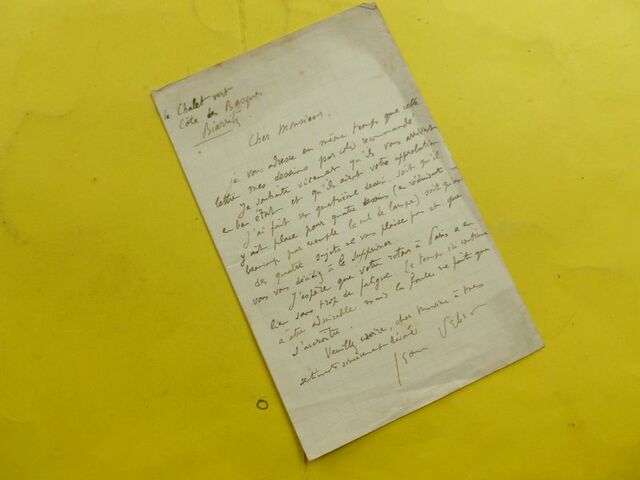 Le Chalet vert
Côte des Basques
Biarritz
Cher Monsieur,
Je vous adresse en même temps que cette
lettre mes dessins par colis recommandé
Je souhaite vivement qu'ils vous arrivent
en bon état et qu'ils aient votre approbation
J'ai fait un quatrième dessin. soit qu'il
y ait place pour quatre dessins (en réduisant
beaucoup par exemple le cul de lampe) soit qu'un
des quatre sujets ne vous plaise pas et que
vous vous décidiez à le supprimer
J'espère que votre retour à Paris a eu
lieu sans trop de fatigue. Le temps ici continue
à être admirable mais la foule ne fait que
s'accroître.
Veuillez croire, cher Monsieur à mes
sentiments sincèrement dévoués
Jean Veber